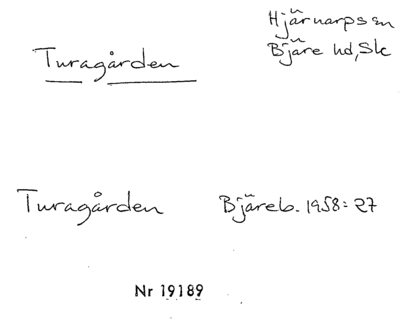 Hjärnarps sn
Turagården
Bjäre hd, Sk
Turagården Bjäreb. 1958: 27
Nr 19189